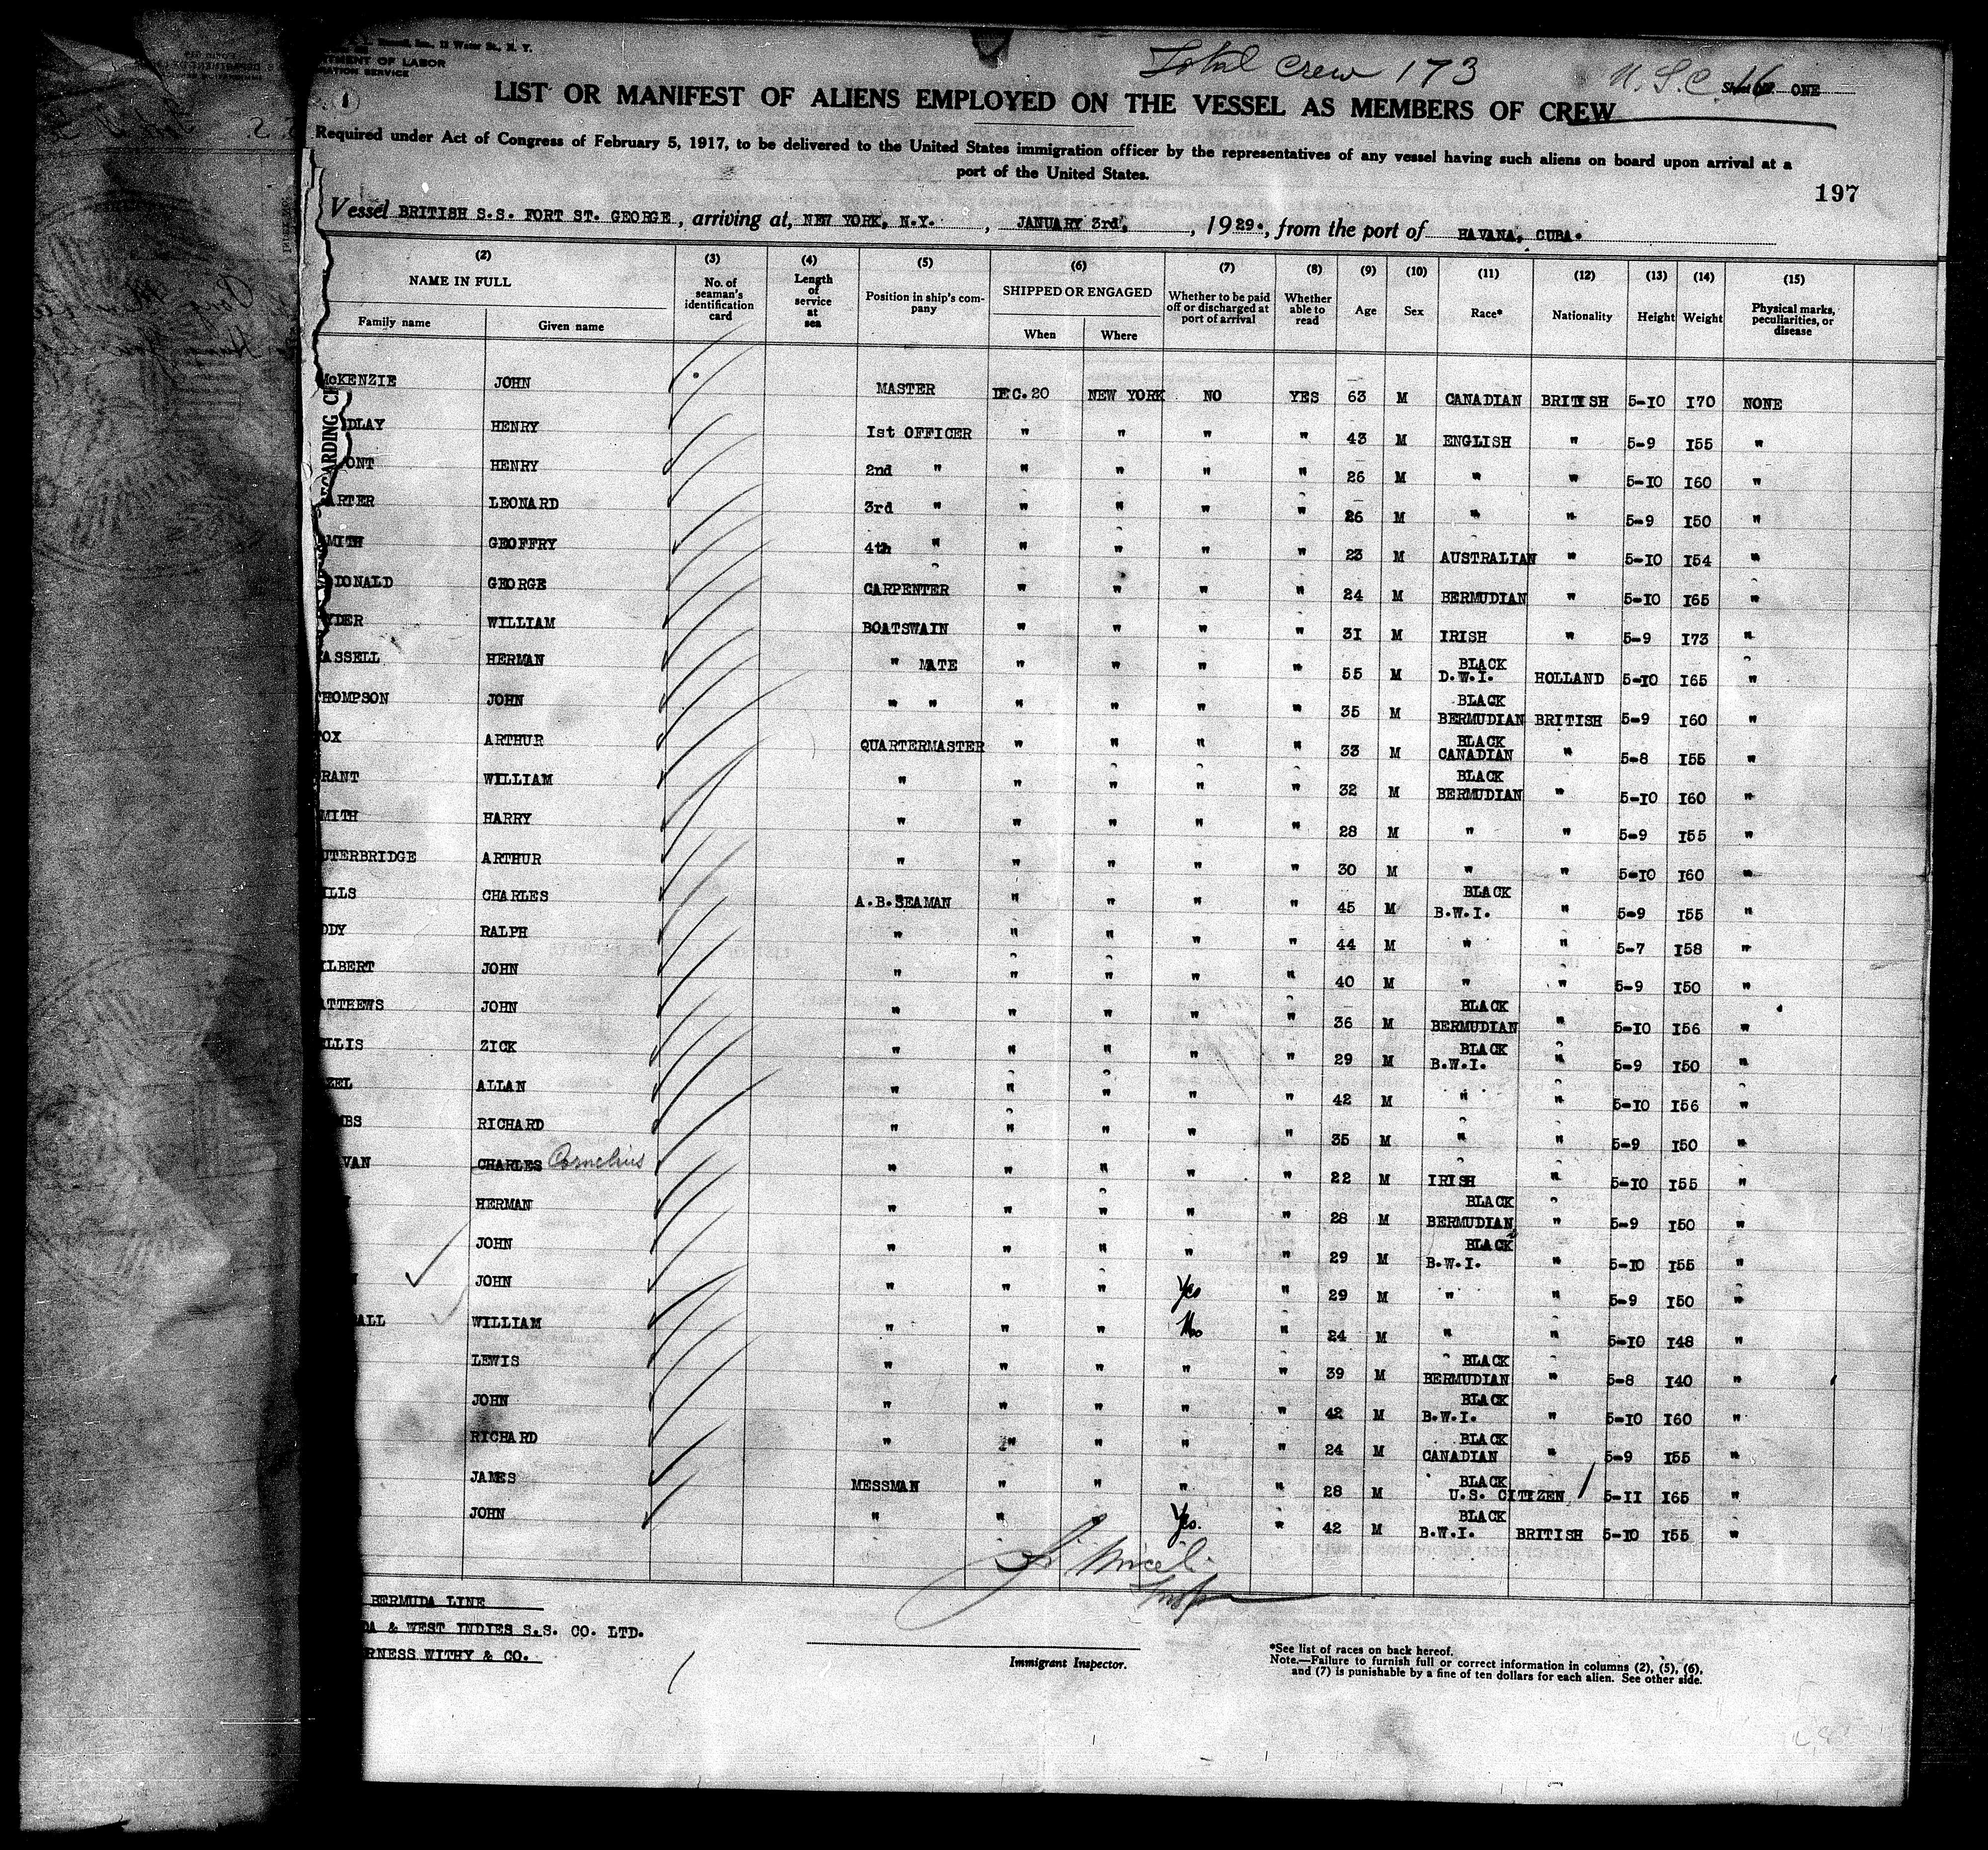 Total Crew 173
U.S.C. 16 ONE
12 Water St., N. Y.
TMENT OF LABOR
ATION SERVICE
LIST OR MANIFEST OF ALIENS EMPLOYED ON THE VESSEL AS MEMBERS OF CREW
Required under Act of Congress of February 5, 1917, to be delivered to the United States immigration officer by the representatives of any vessel having such aliens on board upon arrival at a
port of the United States.
197
Vessel BRITISH S.S. FORT ST. GEORGE, arriving at, NEW YORK, N.Y., JANUARY 3rd, 1929., from the port of HAVANA, CUBA.
(2) (3) (4) (5) (6) (7) (8) (9) (10) (11) (12) (13) (14) (15)
NAME IN FULL No. of seaman's identification card Length of service at sea Position in ship's company SHIPPED OR ENGAGED Whether to be paid off or discharged at port of arrival Whether able to read Age Sex Race* Nationality Height Weight Physical marks, peculiarities, or disease
Family name Given name When Where
McKENZIE JOHN MASTER DEC.20 NEW YORK NO YES 63 M CANADIAN BRITISH 5-10 170 NONE
DLAY HENRY 1st OFFICER " " " " 43 M ENGLISH " 5-9 155 "
ONT HENRY 2nd " " " " " 26 M " " 5-10 160 "
ARTER LEONARD 3rd " " " " " 26 M " " 5-9 150 "
MITH GEOFFRY 4th " " " " " 23 M AUSTRALIAN " 5-10 154 "
DONALD GEORGE CARPENTER " " " " 24 M BERMUDIAN " 5-10 165 "
YDER WILLIAM BOATSWAIN " " " " 31 M IRISH " 5-9 173 "
ASSELL HERMAN " MATE " " " " 55 M BLACK D.W.I. HOLLAND 5-10 165 "
THOMPSON JOHN " " " " " " 35 M BLACK BERMUDIAN BRITISH 5-9 160 "
OX ARTHUR QUARTERMASTER " " " " 33 M BLACK CANADIAN " 5-8 155 "
RANT WILLIAM " " " " " 32 M BLACK BERMUDIAN " 5-10 160 "
MITH HARRY " " " " " 28 M " " 5-9 155 "
UTERBRIDGE ARTHUR " " " " " 30 M " " 5-10 160 "
ILLS CHARLES A.B.SEAMAN " " " " 45 M BLACK B.W.I. " 5-9 155 "
ODY RALPH " " " " " 44 M " " 5-7 158 "
ILBERT JOHN " " " " " 40 M " " 5-9 150 "
ATTHEWS JOHN " " " " " 36 M BLACK BERMUDIAN " 5-10 156 "
LLIS ZICK " " " " " 29 M BLACK B.W.I. " 5-9 150 "
ZEL ALLAN " " " " " 42 M " " 5-10 156 "
MBS RICHARD " " " " " 35 M " " 5-9 150 "
VAN CHARLES Cornelius " " " " " 22 M IRISH " 5-10 155 "
HERMAN " " " " " 28 M BLACK BERMUDIAN " 5-9 150 "
JOHN " " " " " 29 M BLACK B.W.I. " 5-10 155 "
JOHN " " " Yes " 29 M " " 5-9 150 "
ALL WILLIAM " " " No " 24 M " " 5-10 148 "
LEWIS " " " " " 39 M BLACK BERMUDIAN " 5-8 140 "
JOHN " " " " " 42 M BLACK B.W.I. " 5-10 160 "
RICHARD " " " " " 24 M BLACK CANADIAN " 5-9 155 "
JAMES MESSMAN " " " " 28 M BLACK U.S. CITIZEN 5-11 165 "
JOHN " " " Yes. " 42 M BLACK B.W.I. BRITISH 5-10 155 "
BERMUDA LINE
DA & WEST INDIES S.S. CO. LTD.
RNESS WITHY & CO.
Immigrant Inspector.
*See list of races on back hereof.
Note.—Failure to furnish full or correct information in columns (2), (5), (6),
and (7) is punishable by a fine of ten dollars for each alien. See other side.